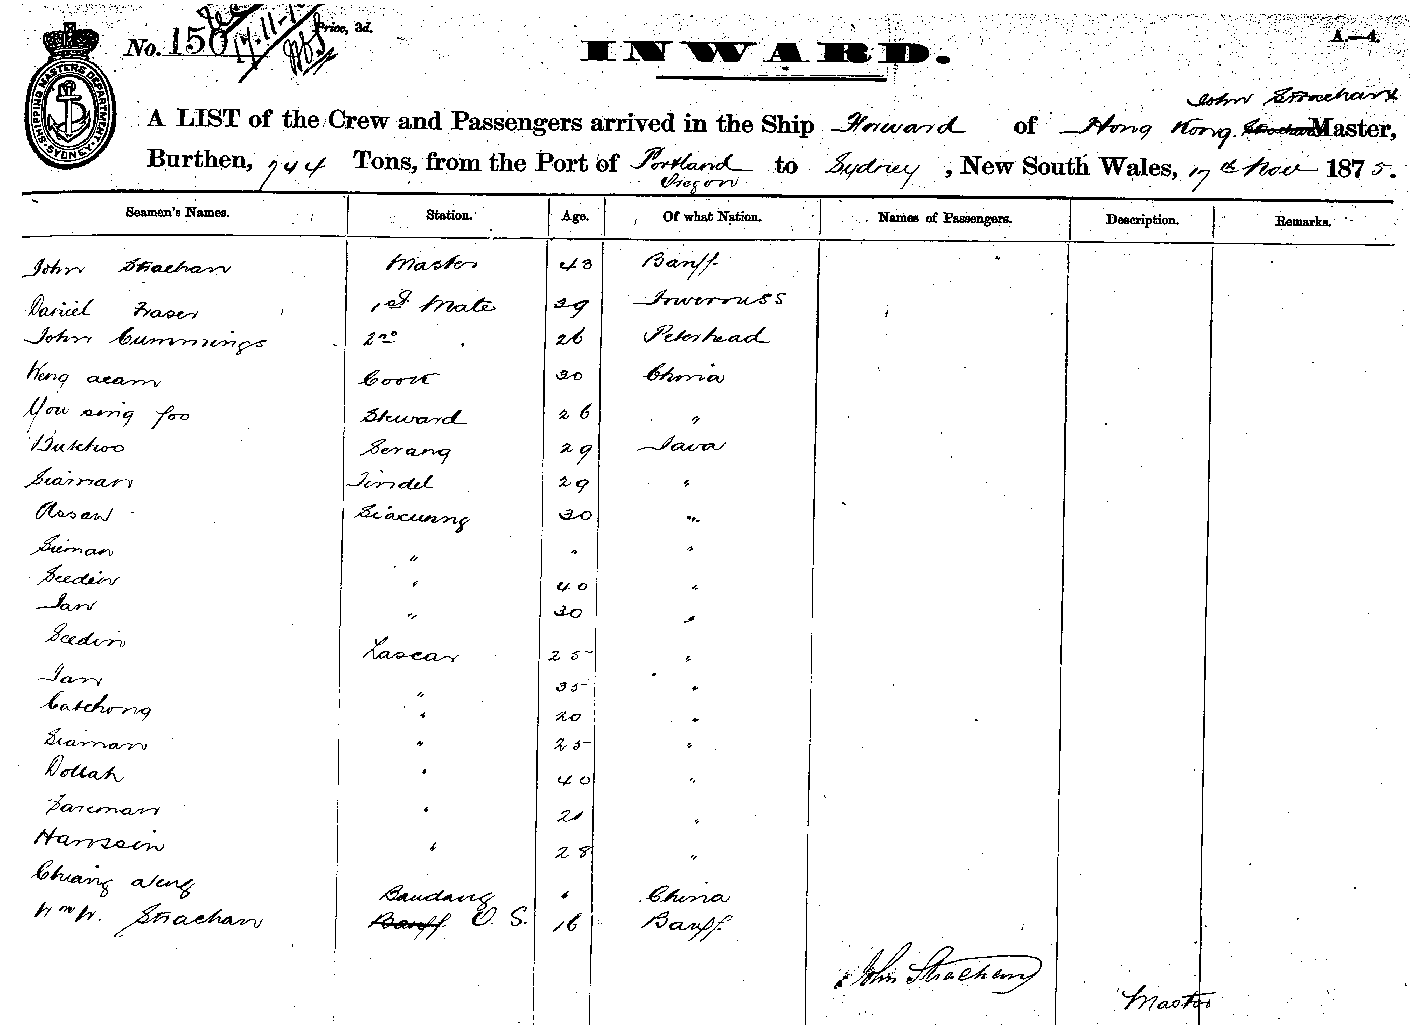 No. 150 Price, 3d.
17-11-7
INWARD.
A.—4.
SHIPPING MASTERS DEPARTMENT SYDNEY
John Strachan
A LIST of the Crew and Passengers arrived in the Ship Forward of Hong Kong. Strachan Master,
Burthen, 744 Tons, from the Port of Portland Oregon to Sydney, New South Wales, 17th Nov 1875.
Seamen's Names. Station. Age. Of what Nation. Names of Passengers. Description. Remarks.
John Strachan Master 43 Banff
Daniel Fraser 1st Mate 29 Inverness
John Cummings 2nd 26 Peterhead
Keng acam Cook 30 China
You sing foo Steward 26 "
Bukhoo Serang 29 Java
Siaman Tindel 29 "
Assan Siacunng 30 "
Siman " " "
Seedin " 40 "
Jan " 30 "
Seedin Lascar 25 "
Jan " 35 "
Catchong " 20 "
Siaman " 25 "
Dollah " 40 "
Sareman " 21 "
Hanssin " 28 "
Chiang aleng Baudang " China
Wm W. Strachan Banff O.S. 16 Banff
John Strachan
Master